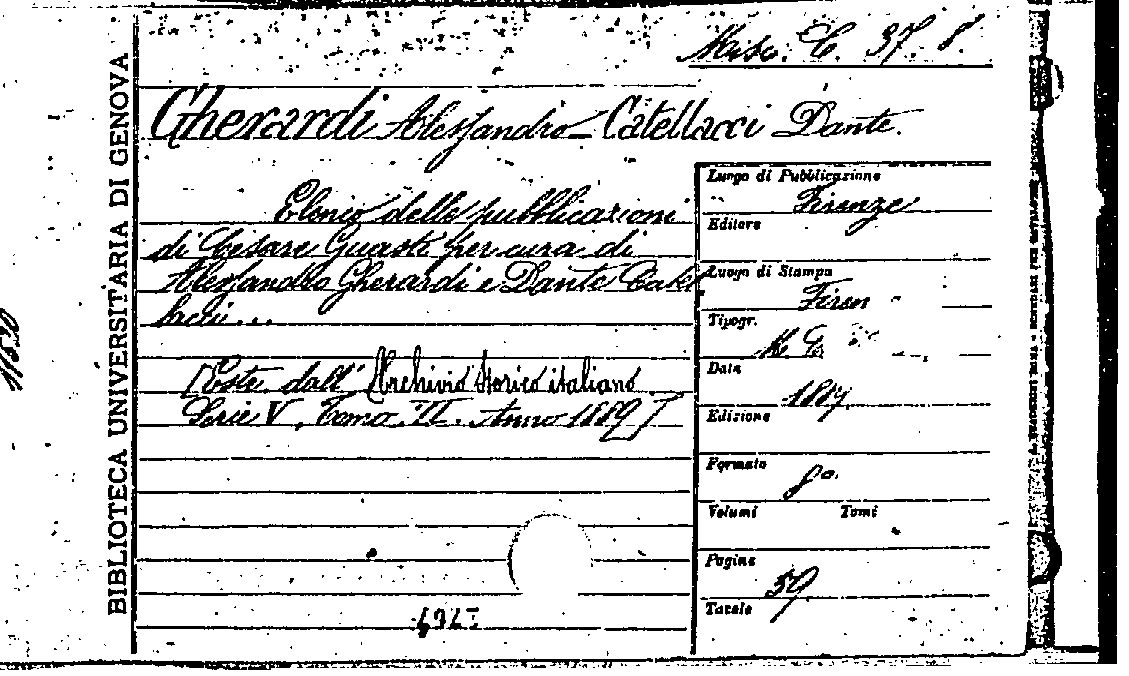 Misc. C. 37. 8.
BIBLIOTECA UNIVERSITARIA DI GENOVA
Gherardi Alessandro - Catellacci Dante.
Elenco delle pubblicazioni
di Cesare Guasti per cura di
Alessandro Gherardi e Dante Catel
lacci...
[Estr. dall' Archivio Storico italiano
Serie V, Tomo II. Anno 1889]
Luogo di Pubblicazione
Firenze
Editore
Luogo di Stampa
Firen
Tipogr.
Data
1889
Edizione
Formato
8º
Volumi Tomi
Pagine
59
Tavole